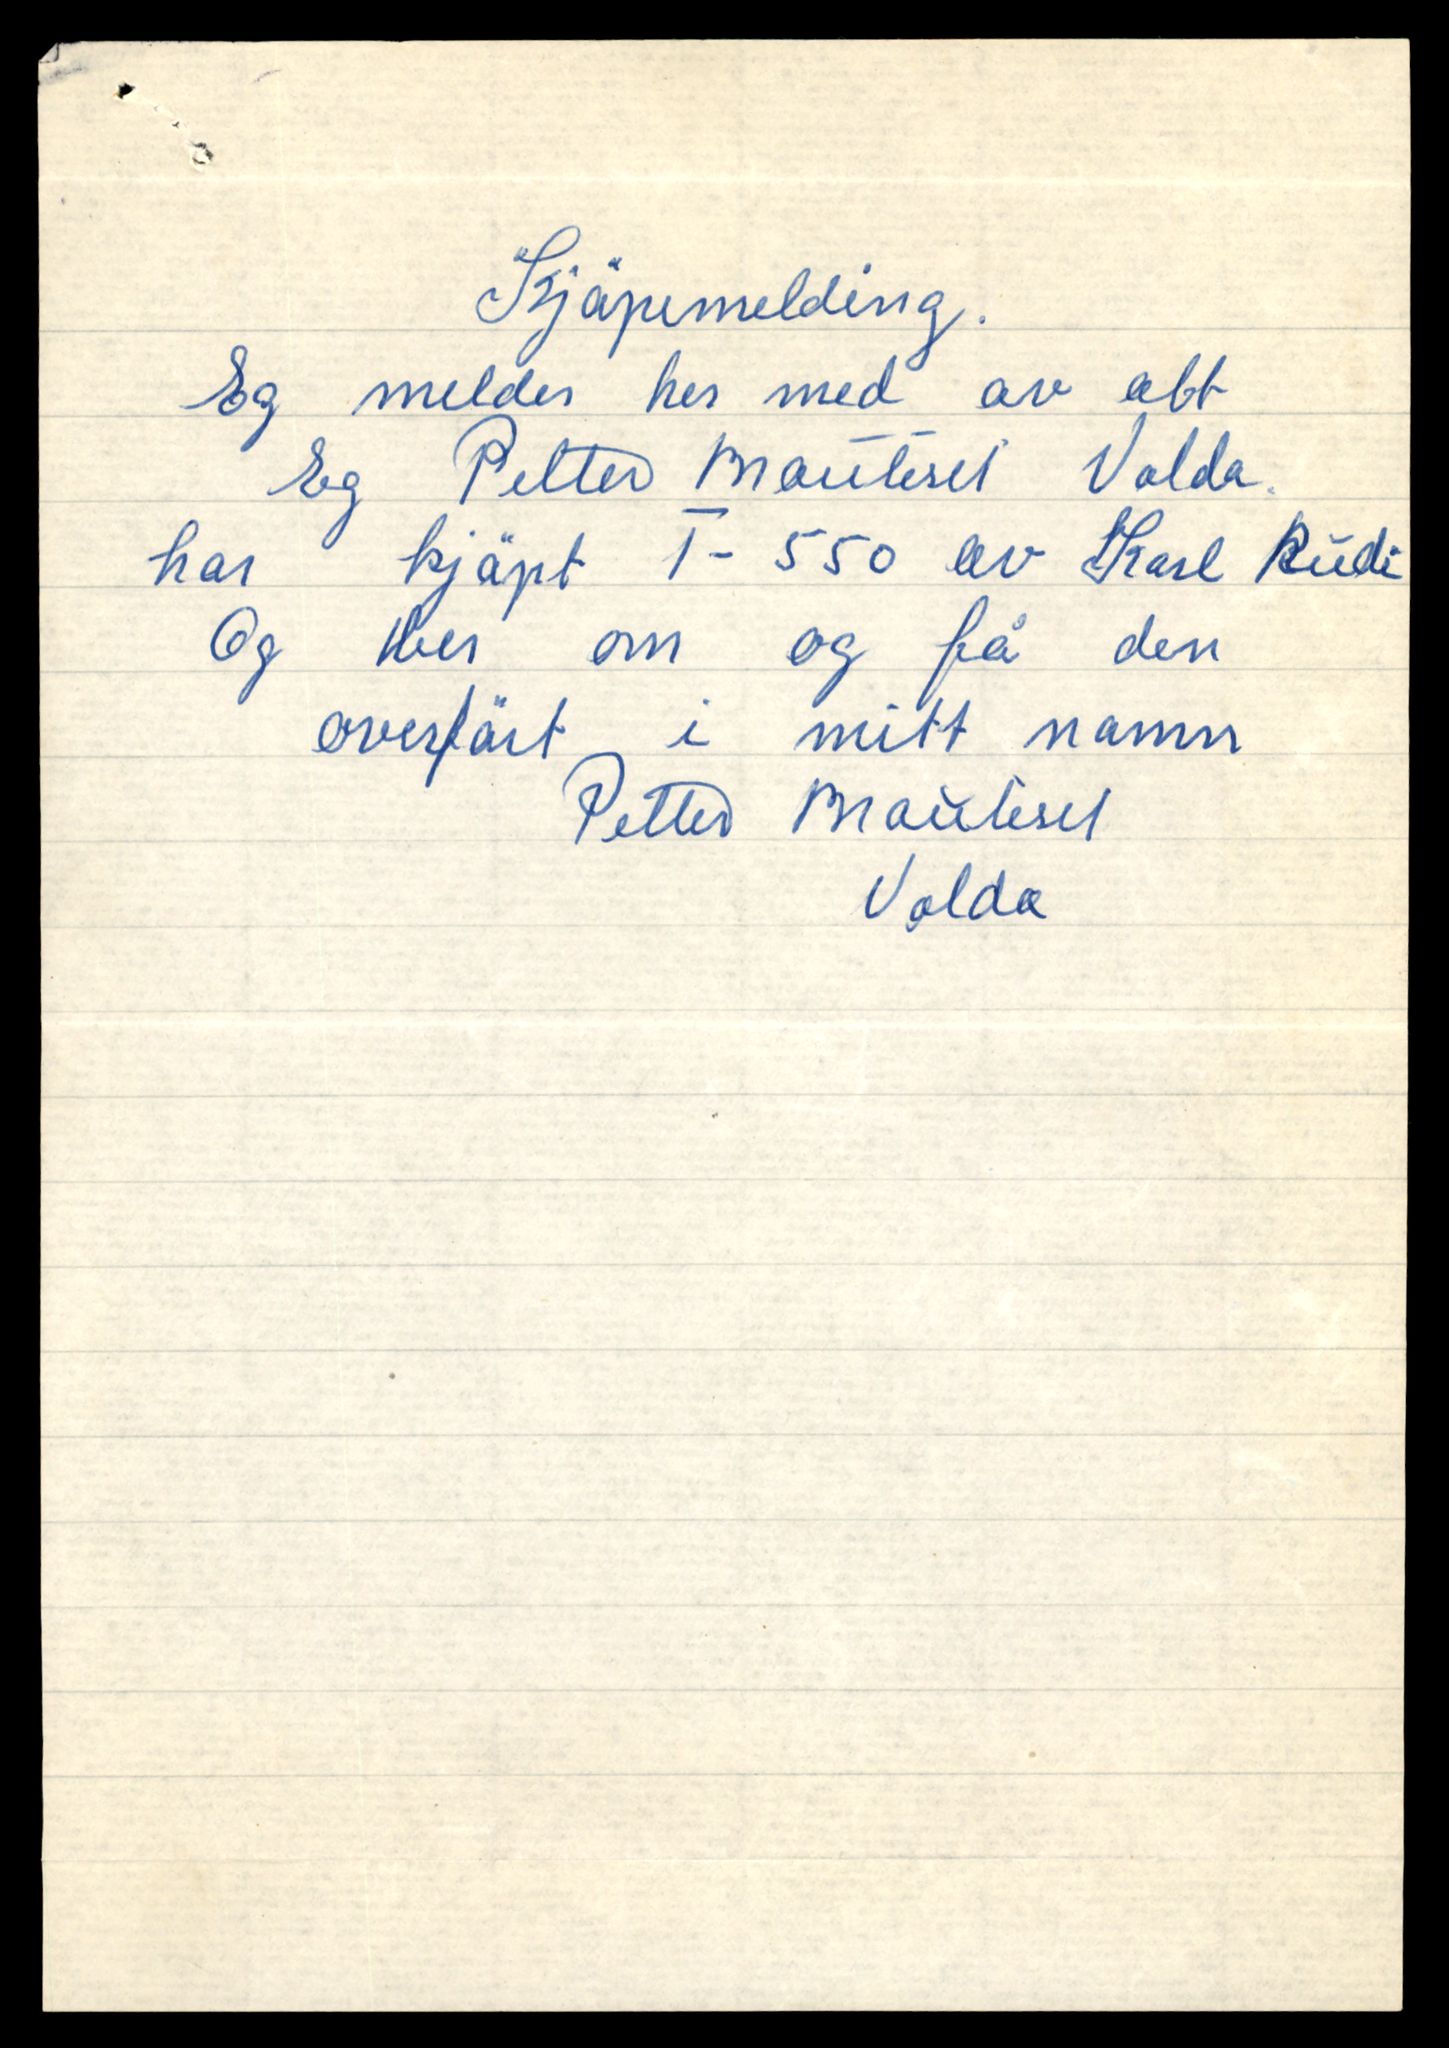 Kjäpemelding.
Eg melder her med av att
Eg Petter Brauteset Volda.
har kjäpt T-550 av Karl Rudi
Og ber om og få den
overfärt i mitt namn
Petter Brauteset
Volda